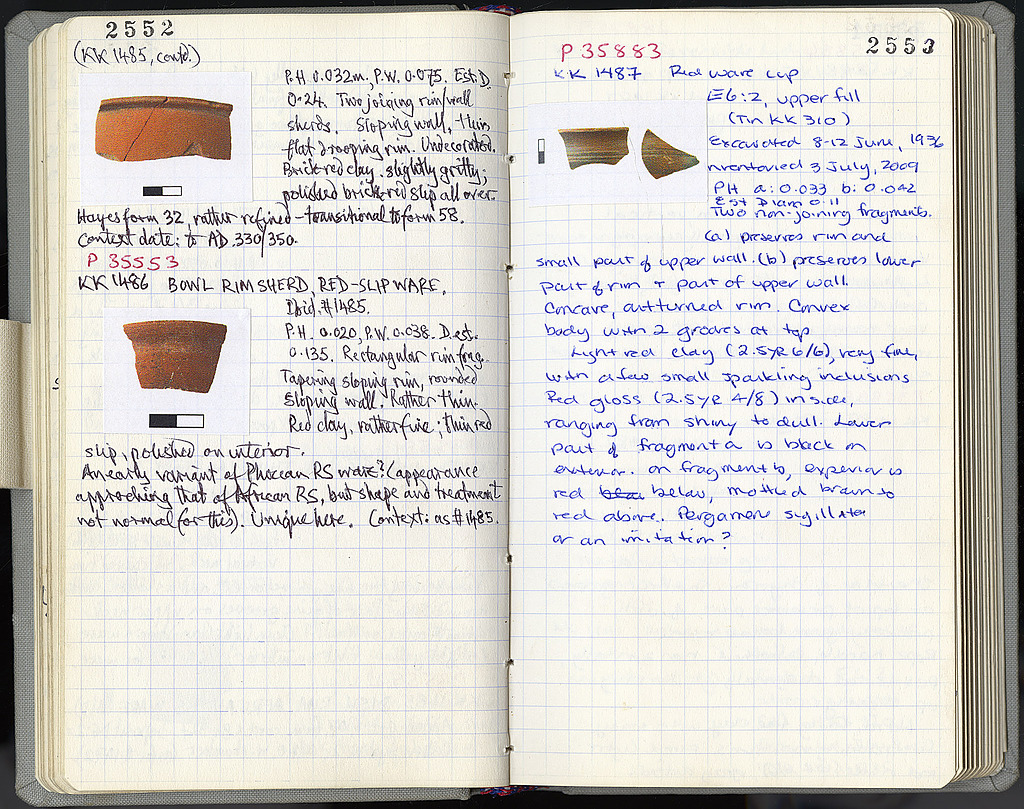 2552
(KK 1485, contd.)
P.H 0.032m, P.W. 0.075. Est. D.
0.24. Two joining rim/wall
sherds. Sloping wall, thin
flat drooping rim. Undecorated.
Brick-red clay, slightly gritty;
polished brick-red slip all over.
Hayes form 32, rather refined – transitional to form 58.
Context date: to AD 330/350.
P 35553
KK 1486 BOWL RIM SHERD, RED-SLIP WARE.
Ibid. #1485.
P.H. 0.020, P.W. 0.038. D. est.
0.135. Rectangular rim frag.
Tapering sloping rim, rounded
sloping wall. Rather thin.
Red clay, rather fine; thin red
slip, polished on interior.
An early variant of Phocean RS ware? (appearance
approaching that of African RS, but shape and treatment
not normal for this). Unique here. Context: as #1485.
2553
P 35883
KK 1487 Red ware cup
E6:2, upper fill
(Tin KK 310)
Excavated 8-12 June, 1936
nventoried 3 July, 2009
PH a: 0.033 b: 0.042
Est Diam 0.11
Two non-joining fragments.
(a) preserves rim and
small part of upper wall. (b) preserves lower
part of rim + part of upper wall.
Concave, outturned rim. Convex
body with 2 grooves at top
Light red clay (2.5YR 6/6), very fine,
with a few small sparkling inclusions
Red gloss (2.5YR 4/8) inside,
ranging from shiny to dull. Lower
part of fragment a is black on
exterior. on fragment b, exterior is
red below, mottled brown to
red above. Pergamene sigillata
or an imitation?